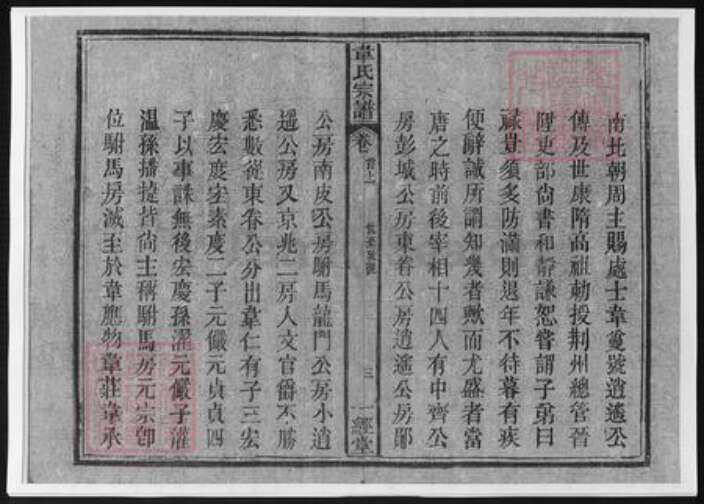 南北朝周主賜處士韋夐號逍遙公
傳及世康隋高祖勅授荆州總管晉
陞吏部尙書和靜謙恕嘗謂子弟曰
祿豈須多防滿則退年不待暮有疾
便辭誠所謂知幾者歟而尤盛者當
唐之時前後宰相十四人有中齊公
房彭城公房東眷公房逍遙公房鄖
韋氏宗譜
卷首上
三
一經堂
公房南皮公房駙馬龍門公房小逍
遥公房又京兆二房人文官爵不勝
悉數從東眷公分出韋仁有子三宏
慶宏度宏素慶二子元儼元貞貞四
子以事誅無後宏慶孫濯元儼子灌
溫孫播捷皆尙主稱駙馬房元宗卽
位駙馬房滅至於韋應物韋莊韋承